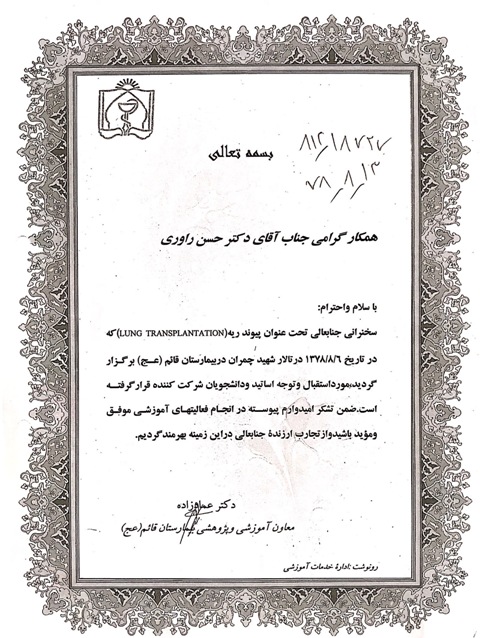 بسمه تعالی
۸۱۴/۸۷۲۷
۷۸/۸/۱۳
همکار گرامی جناب آقای دکتر حسن راوری
با سلام واحترام:
سخنرانی جنابعالی تحت عنوان پیوند ریه(LUNG TRANSPLANTATION)که
در تاریخ ۱۳۷۸/۸/۶ درتالار شهید چمران دربیمارستان قائم (عج) برگزار
گردید،مورداستقبال وتوجه اساتید ودانشجویان شرکت کننده قرارگرفته
است.ضمن تشکر امیدوارم پیوسته در انجام فعالیتهای آموزشی موفق
ومؤید باشیدوازتجارب ارزندهٔ جنابعالی دراین زمینه بهرمندگردیم.
دکتر عمادزاده
معاون آموزشی وپژوهشی بیمارستان قائم(عج)
رونوشت :ادارهٔ خدمات آموزشی